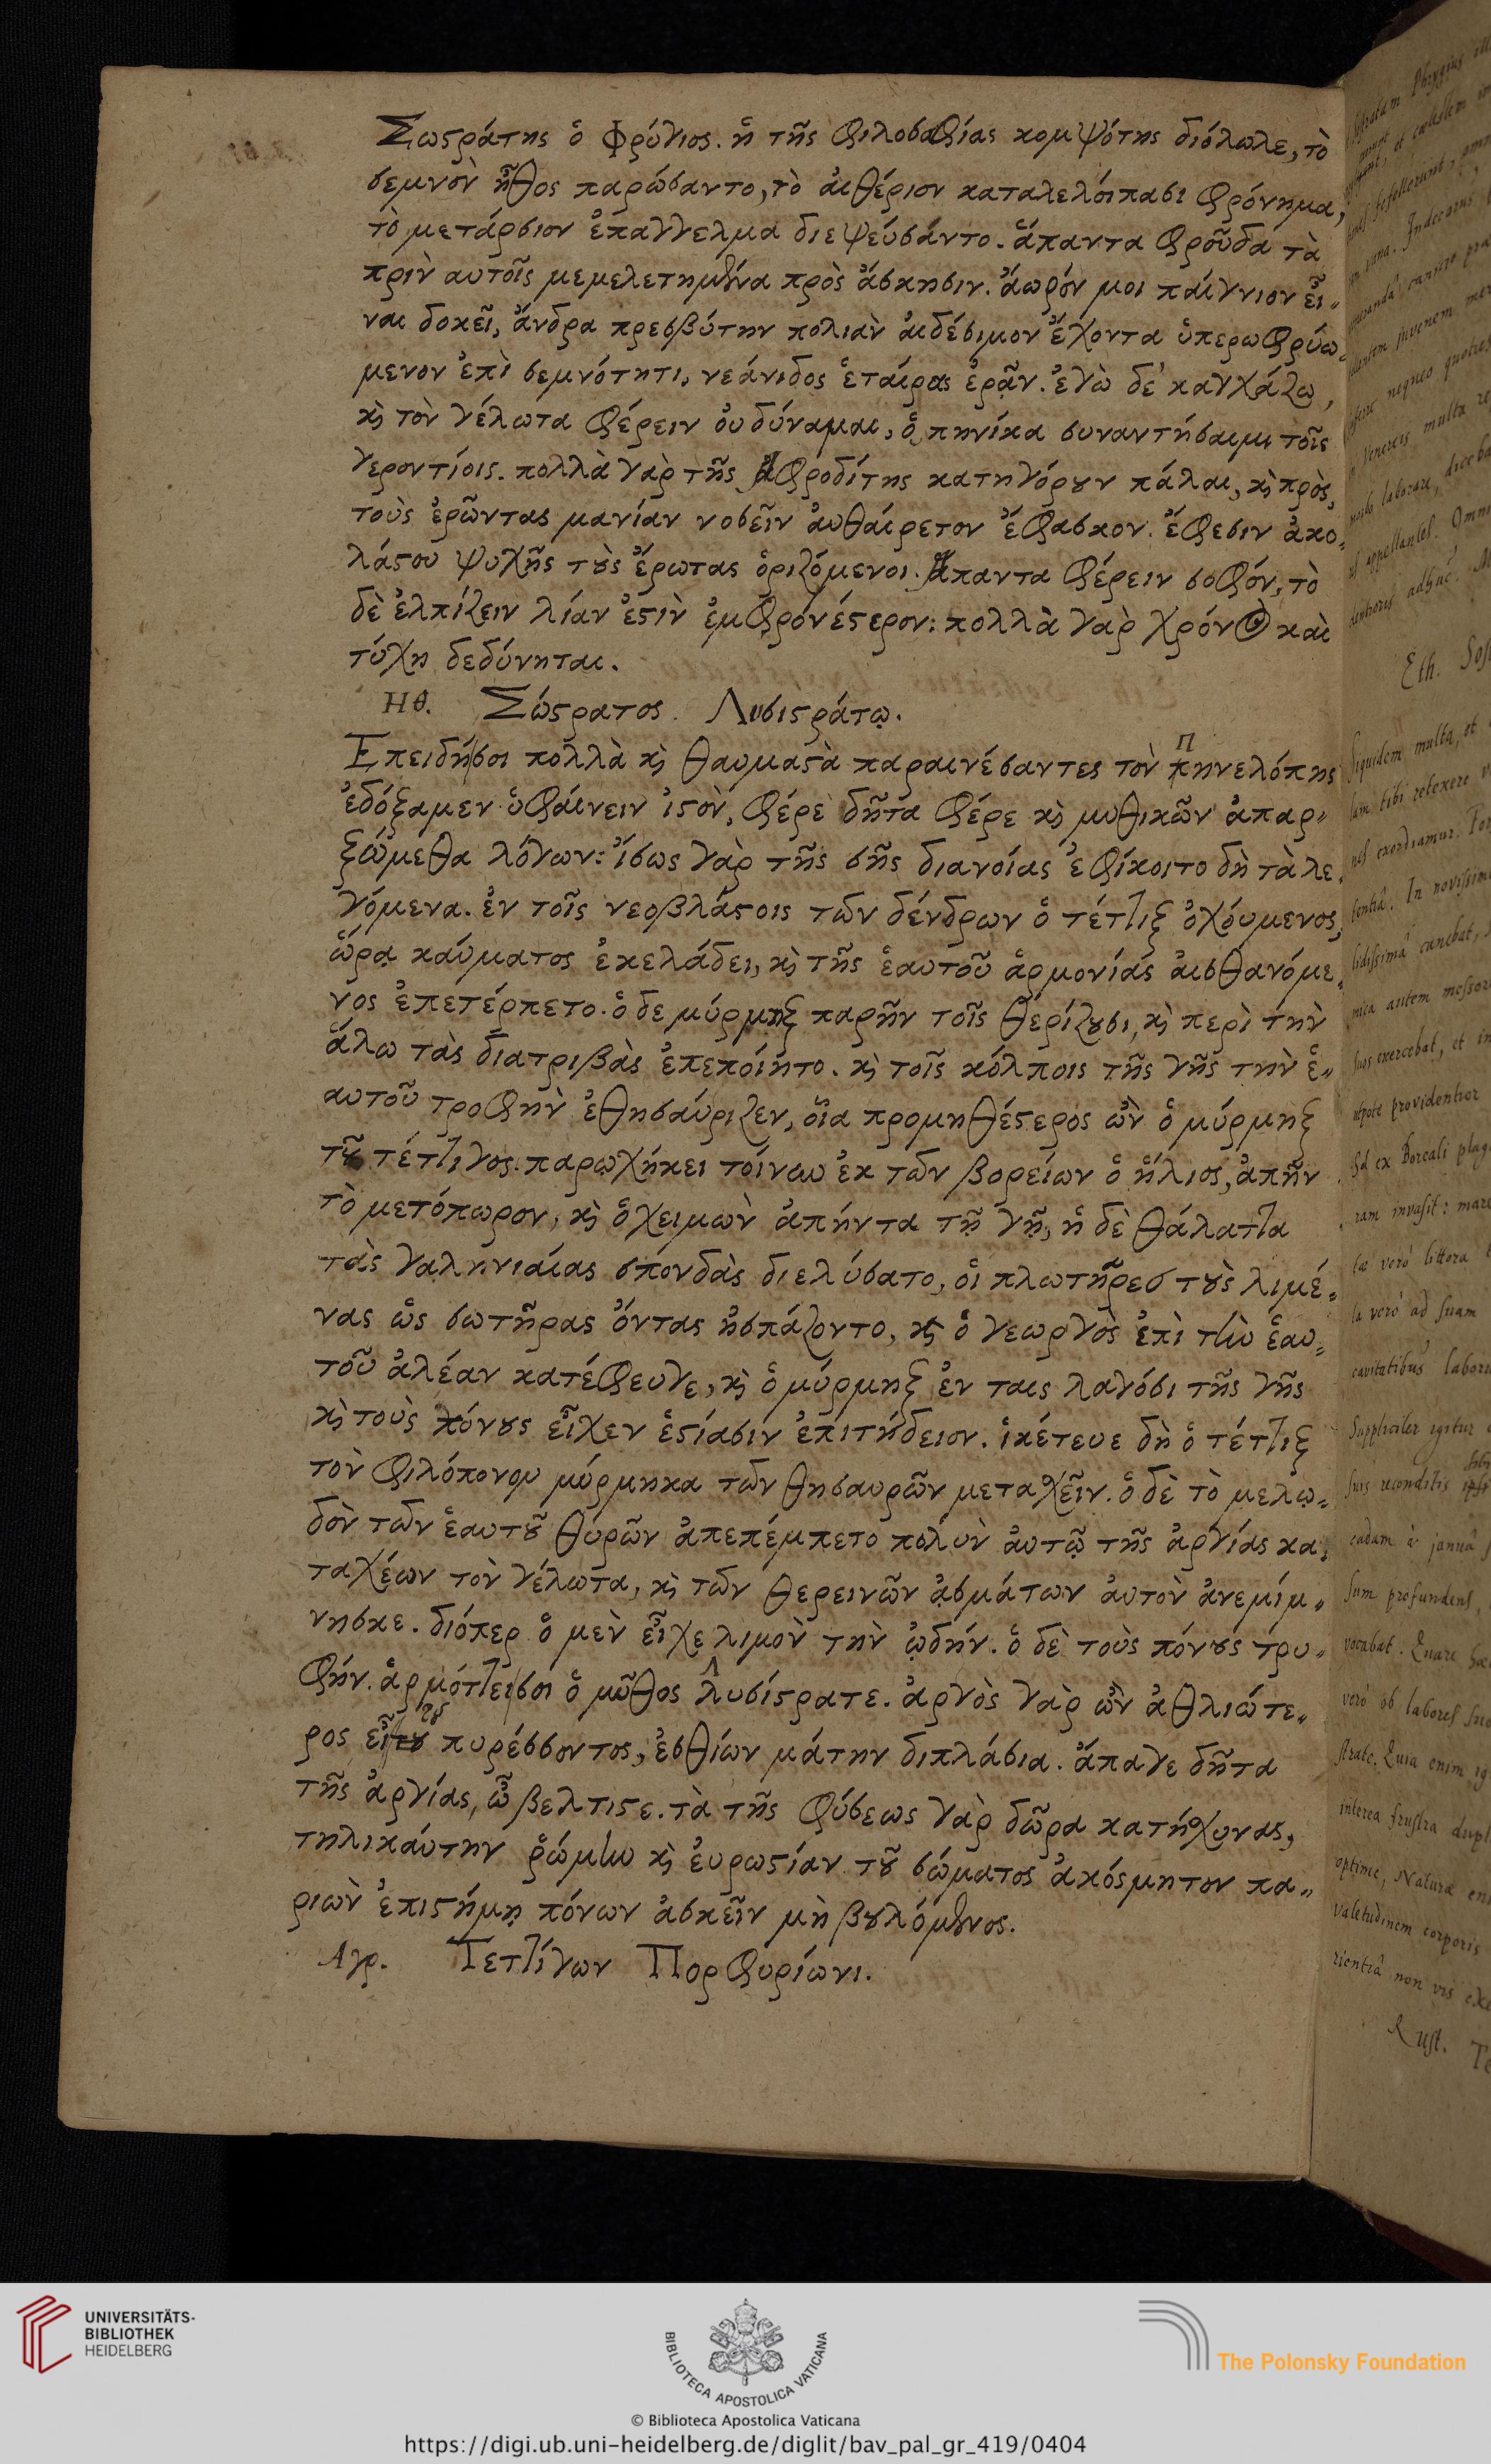 Σωκράτης ὁ Φρύγιος. ἡ τῆς φιλοσοφίας κομψότης διόλωλε, τὸ
σεμνὸν ἦθος παρώσαντο, τὸ αἰθέριον καταλελοίπασι φρόνημα,
τὸ μετάρσιον ἐπαγγελμα διεψεύσάντο. ἅπαντα φροῦδα τὰ
πρὶν αυτοῖς μεμελετημένα πρὸς ἄσκησιν. ἄωρόν μοι παίγνιον εἶ-
ναι δοκεῖ, ἄνδρα πρεσβύτην πολιὰν αἰδέσιμον ἔχοντα ὑπερωφρύω-
μενον ἐπὶ σεμνότητι, νεάνιδος ἑταίρας ἐρᾷν. ἐγὼ δὲ καγχάζω,
κὶ τὸν γέλωτα φέρειν οὐ δύναμαι, ὁπηνίκα συναντήσαιμι τοῖς
γεροντίοις. πολλὰ γὰρ τῆς Ἀφροδίτης κατηγόρουν πάλαι, κὶ πρὸς
τοὺς ἐρῶντας μανίαν νοσεῖν ἀυθαίρετον ἔφασκον. ἔφεσιν ἀκο-
λάστου ψυχῆς τοὺς ἔρωτας ὁριζόμενοι. Ἅπαντα φέρειν σοφόν, τὸ
δὲ ἐλπίζειν λίαν ἐστὶν ἐμφρονέστερον: πολλὰ γὰρ χρόνος καὶ
τύχη δεδύνηται.
Ηθ. Σώστρατος. Λυσιστράτῳ.
Ἐπειδή σοι πολλὰ κὶ θαυμαστὰ παραινέσαντες τὸν Πηνελόπης
ἐδόξαμεν ὑφαίνειν ἱστὸν, φέρε δῆτα φέρε κὶ μυθικῶν ἀπαρ-
ξώμεθα λόγων: ἴσως γὰρ τῆς σῆς διανοίας ἐφίκοιτο δὴ τὰ λε-
γόμενα. ἐν τοῖς νεοβλάστοις τῶν δένδρων ὁ τέττιξ ὀχούμενος,
ὥρᾳ καύματος ἐκελάδει, κὶ τῆς ἑαυτοῦ ἁρμονίας αἰσθανόμε-
νος ἐπετέρπετο. ὁ δε μύρμηξ παρῆν τοῖς θερίζουσι, κὶ περὶ τὴν
ἅλω τὰς διατριβὰς ἐπεποίητο. κὶ τοῖς κόλποις τῆς γῆς τὴν ἑ-
αυτοῦ τροφὴν ἐθησαύριζεν, οἷα προμηθέστερος ὢν ὁ μύρμηξ
τοῦ τέττιγος. παρῳχήκει τοίνυν ἐκ τῶν βορείων ὁ ἥλιος, ἀπῆν
τὸ μετόπωρον, κὶ ὁ χειμὼν ἀπήντα τῇ γῇ, ἡ δὲ θάλαττα
τὰς γαληνιαίας σπονδὰς διελύσατο, οἱ πλωτῆρες τοὺς λιμέ-
νας ὡς σωτῆρας ὄντας ἠσπάζοντο, κὶ ὁ γεωργὸς ἐπὶ τὴν ἑαυ-
τοῦ ἀλέαν κατέφευγε, κὶ ὁ μύρμηξ ἐν ταις λαγόσι τῆς γῆς
κὶ τοὺς πόνους εἶχεν ἑστίασιν ἐπιτήδειον. ἱκέτευε δὴ ὁ τέττιξ
τὸν φιλόπονον μύρμηκα τῶν θησαυρῶν μετασχεῖν. ὁ δὲ τὸ μελῳ-
δὸν τῶν ἑαυτοῦ θυρῶν ἀπεπέμπετο πολὺν ἀυτῷ τῆς ἀργίας κα-
ταχέων τὸν γέλωτα, κὶ τῶν θερεινῶν ᾀσμάτων ἀυτὸν ἀνεμίμ-
νησκε. διόπερ ὁ μὲν εἶχε λιμὸν τὴν ᾠδήν. ὁ δὲ τοὺς πόνους τρυ-
φήν. ἁρμόττει σοι ὁ μῦθος Λυσίστρατε. ἀργὸς γὰρ ὢν ἀθλιώτε-
ρος εἶ τοῦ πυρέσσοντος, ἐσθίων μάτην διπλάσια. ἄπαγε δῆτα
τῆς ἀργίας, ὦ βελτιστε. τὰ τῆς φύσεως γὰρ δῶρα κατῄσχυνας,
τηλικαύτην ῥώμην κὶ ἐυρωστίαν τοῦ σώματος ἀκόσμητον πα-
ριὼν ἐπιστήμῃ πόνων ἀσκεῖν μὴ βουλόμενος.
Αγρ. Τεττίγων Πορφυρίωνι.
UNIVERSITÄTS-
BIBLIOTHEK
HEIDELBERG
BIBLIOTECA APOSTOLICA VATICANA
The Polonsky Foundation
© Biblioteca Apostolica Vaticana
https://digi.ub.uni-heidelberg.de/diglit/bav_pal_gr_419/0404